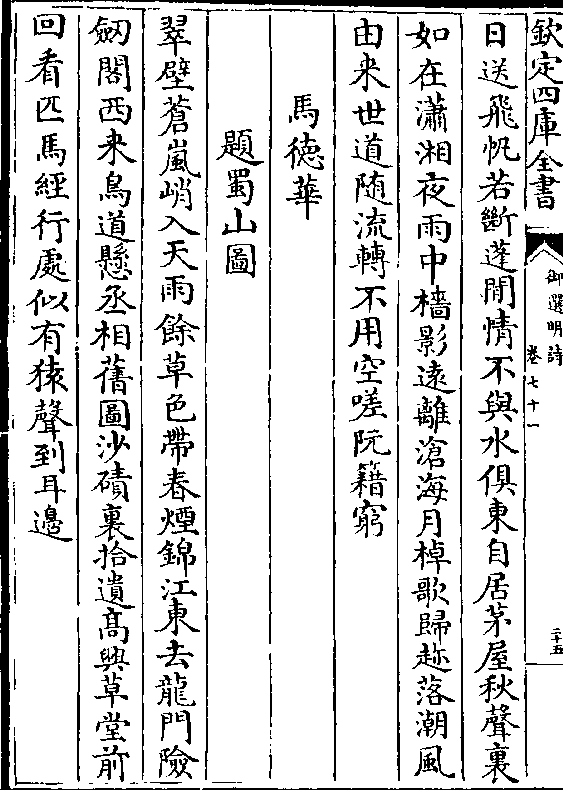 欽定四庫全書
御選明詩
卷七十一
二十五
日送飛帆若斷蓬閒情不與水俱東自居茅屋秋聲裏
如在瀟湘夜雨中檣影遠離滄海月棹歌歸趂落潮風
由来世道随流轉不用空嗟阮籍窮
馬德華
題蜀山圖
翠壁蒼嵐峭入天雨餘草色帶春煙錦江東去龍門險
劒閣西来鳥道懸丞相舊圖沙磧裏拾遺髙興草堂前
回看匹馬經行處似有猿聲到耳邊